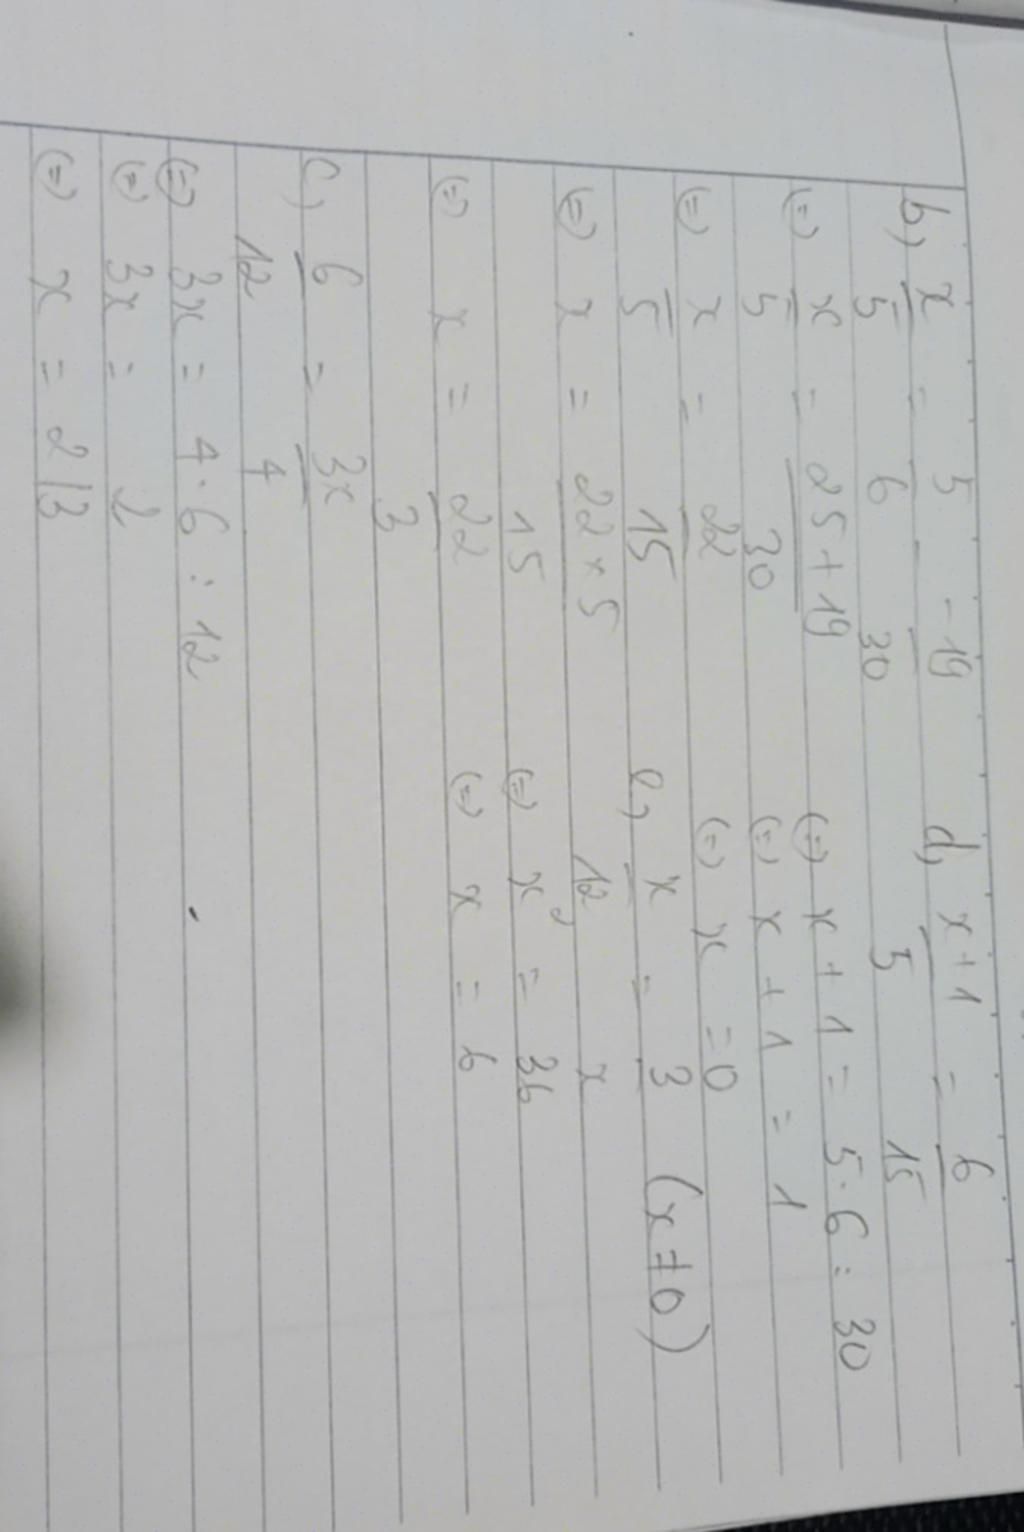 b, x/5 = 5/6 - 19/30
(=) x/5 = 25+19/30
(=) x/5 = 22/15
(=) x = 22×5/15
(=) x = 22/3
c, 6/12 = 3x/4
(=) 3x = 4.6:12
(=) 3x = 2
(=) x = 2/3
d, x+1/5 = 6/15
(=) x+1 = 5.6:30
(=) x+1 = 1
(=) x = 0
e, x/12 = 3/x (x≠0)
(=) x² = 36
(=) x = 6